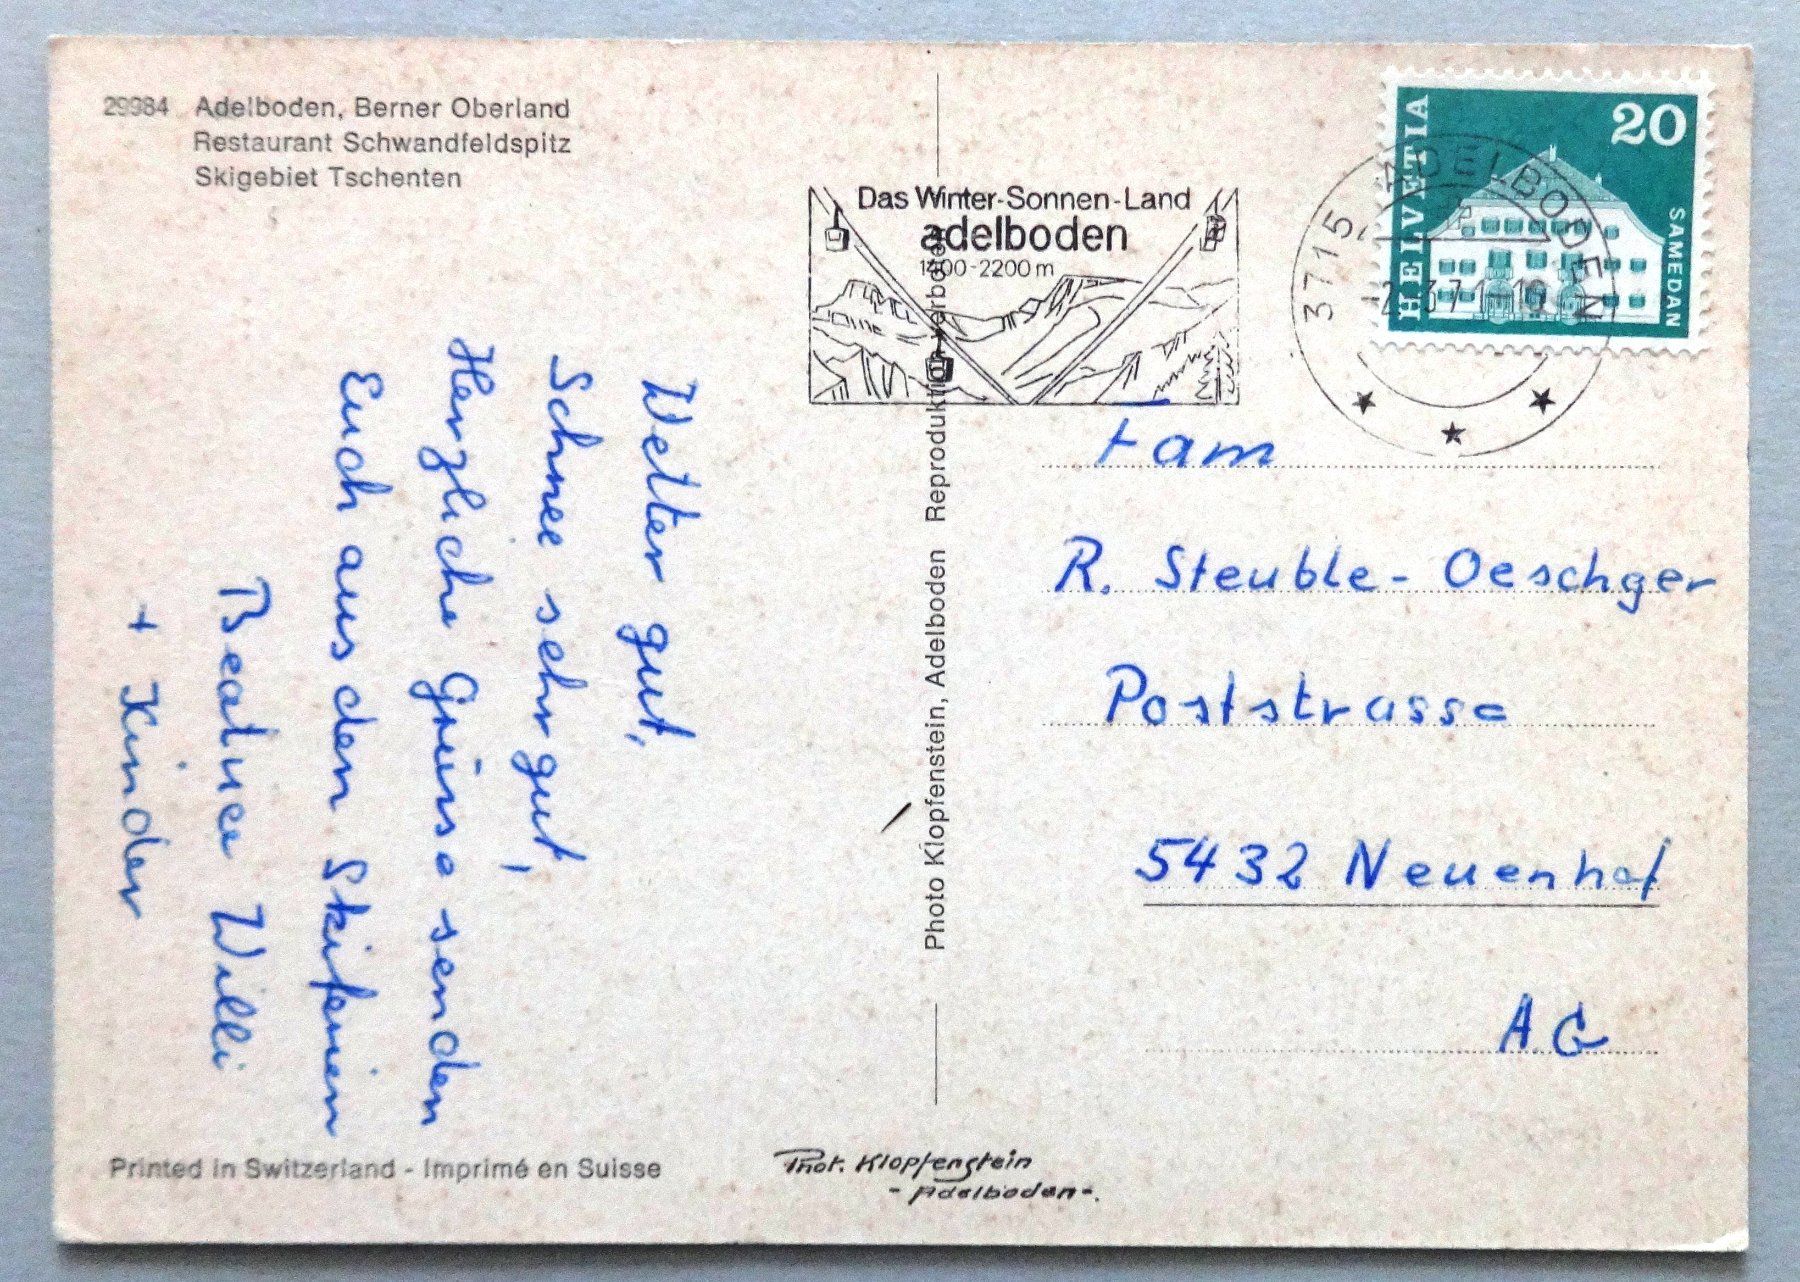 29984 Adelboden, Berner Oberland
Restaurant Schwandfeldspitz
Skigebiet Tschenten
Wetter gut,
Schnee sehr gut,
Herzliche Grüsse senden
Euch aus den Skiferien
Beatrice Willi
+ Kinder
Printed in Switzerland - Imprimé en Suisse
Photo Klopfenstein, Adelboden Reproduktion verboten
Phot. Klopfenstein
- Adelboden -.
Das Winter-Sonnen-Land
adelboden
1400-2200 m
3715 ADELBODEN
HELVETIA
20
SAMEDAN
Fam
R. Steuble - Oeschger
Poststrasse
5432 Neuenhof
AG